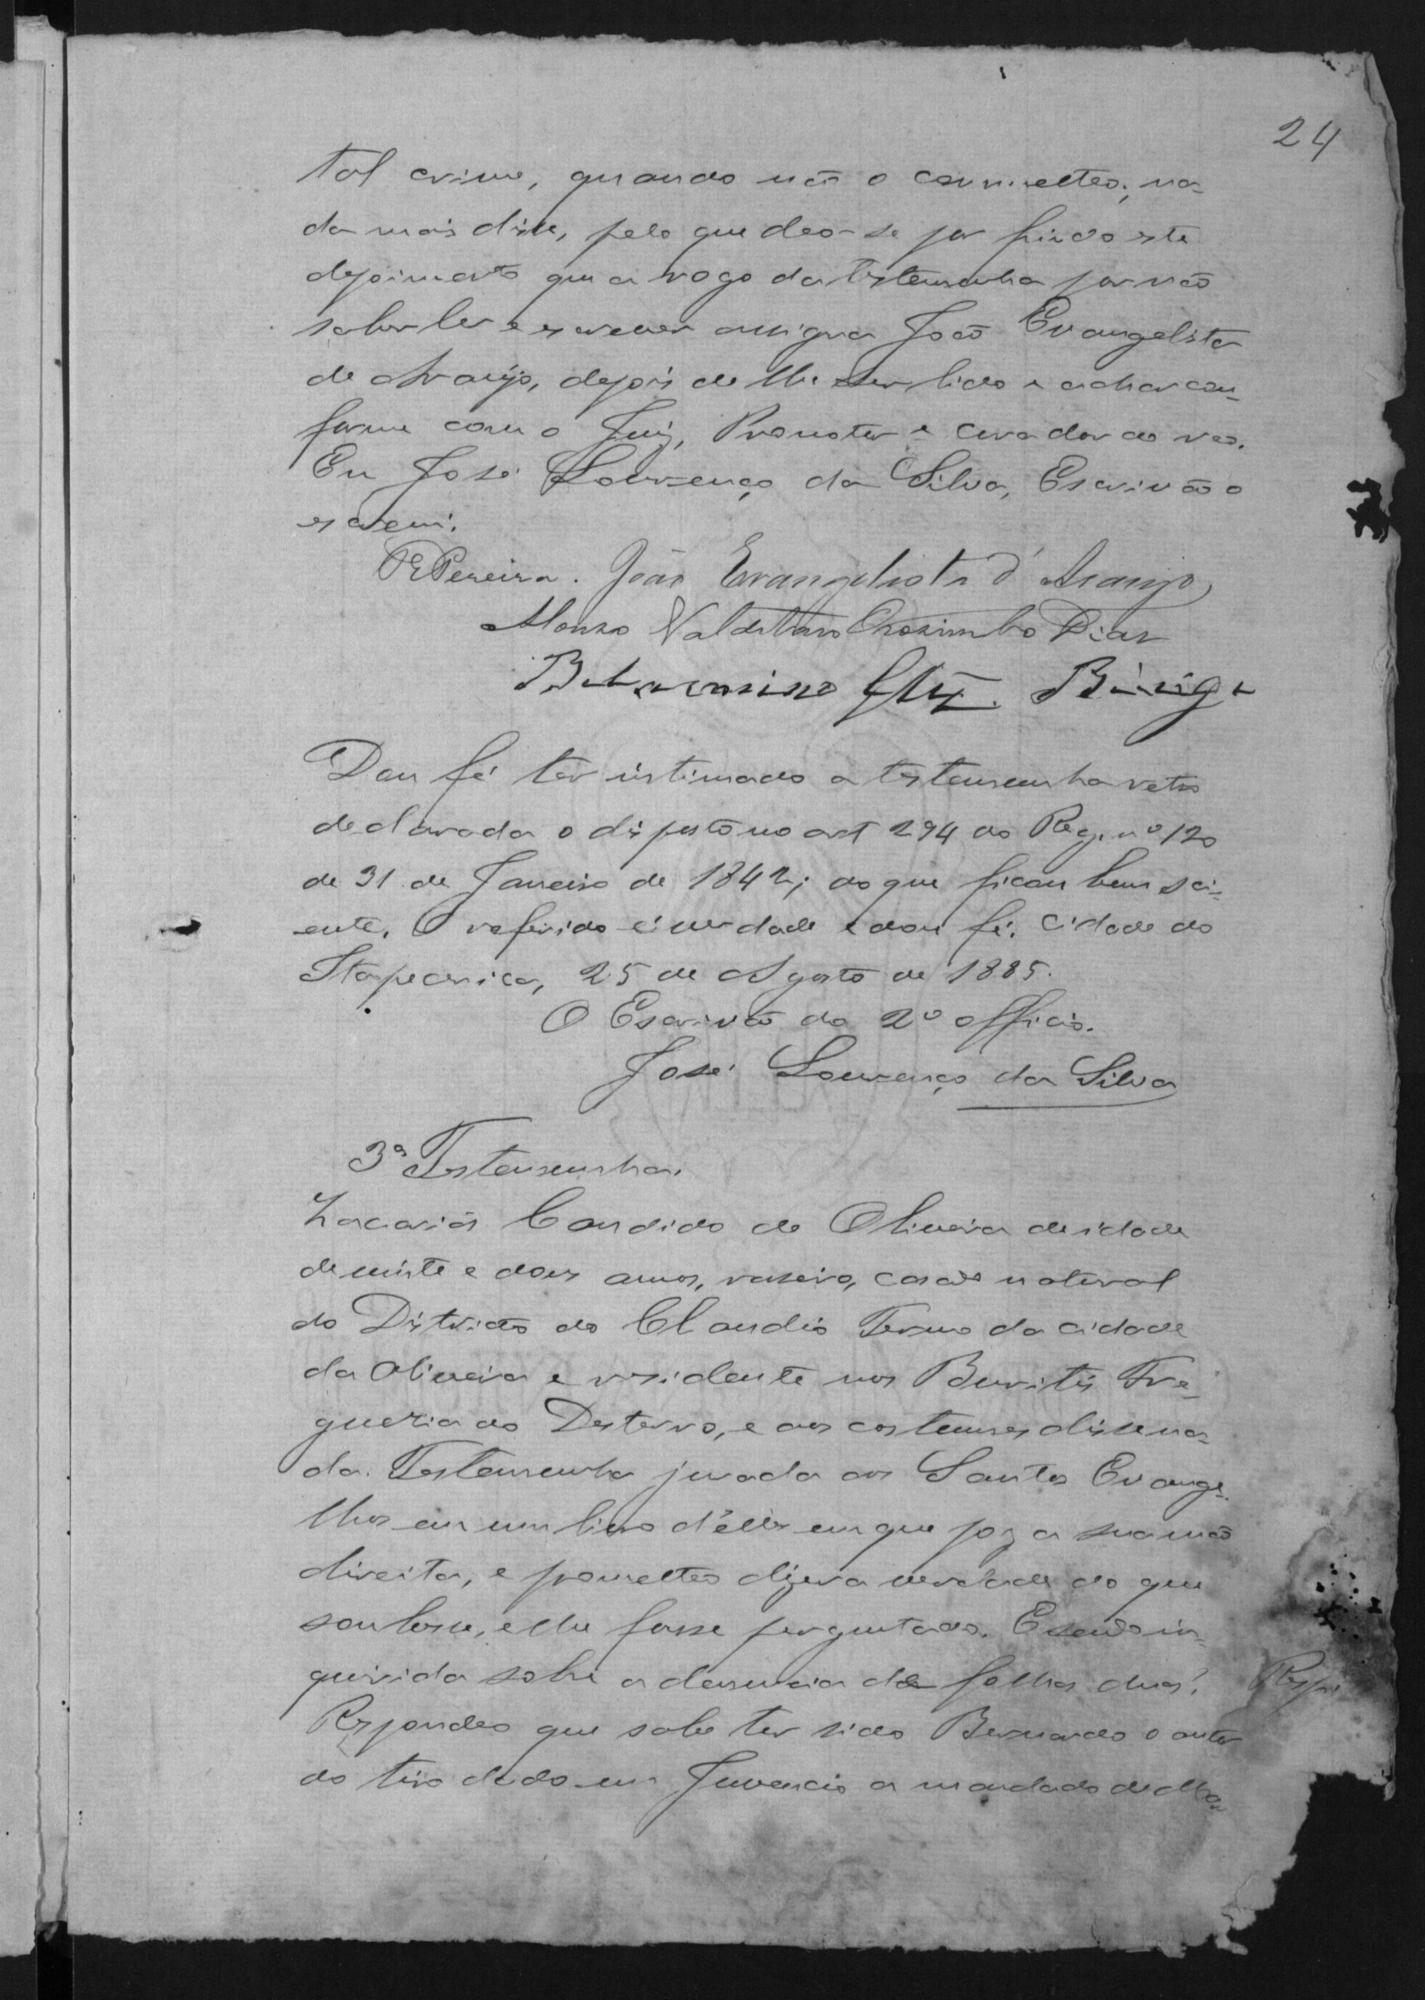 24
tal crime, quando não o commetteo; na-
da mais disse, pelo que deo-se por findo este
depoimento que a rogo da testemunha por não
saber ler e escrever assigna João Evangelista
de Araújo, depois de lhe ser lido e achar con-
forme com o Juiz, Promotor e curador do reo.
Eu José Lourenço da Silva, Escrivão o
escrevi.
Pereira. João Evangelista d'Araujo
Chrosimbo Dias
Dou fé ter intimado a testemunha retro
declarada o disposto no art 294 do Reg. nº 120
de 31 de Janeiro de 1842; do que ficou bem sci-
ente. O referido é verdade e dou fé. Cidade do
Itapecerica, 25 de Agosto de 1885.
O Escrivão do 2º officio.
José Lourenço da Silva
3ª Testemunha.
Zacarias Candido de Oliveira de idade
de vinte e dous annos, casado natural
do Districto do Claudio Termo da cidade
da Oliveira e residente nos Buritis Fre-
guezia do Desterro, e aos costumes disse na-
da. Testemunha jurada aos Santos Evange-
lhos em um livro d'elles em que poz a sua mão
direita, e prometteo dizer a verdade do que
soubesse, e lhe fosse perguntado. E sendo in-
quirida sobre a denuncia de folhas duas!
Respondeo que sabe ter sido Bernardo o autor
do tiro dado em Juvencio a mandado de